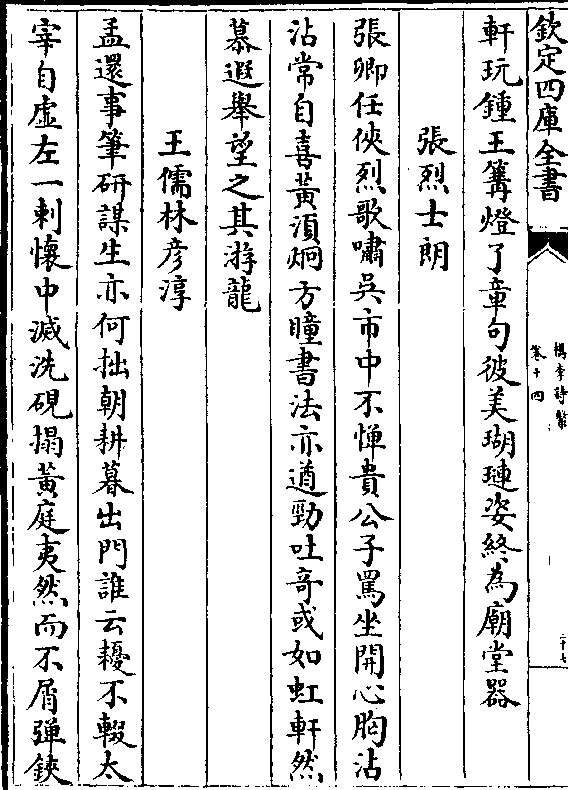 欽定四庫全書
檇李詩繫
卷十四
二十七
軒玩鍾王篝燈了章句彼美瑚璉姿終為廟堂器
張烈士朗
張卿任俠烈歌嘯吳市中不憚貴公子罵坐開心胸沾
沾常自喜黃須炯方瞳書法亦遒勁吐奇或如虹軒然
慕遐舉望之其游龍
王儒林彥淳
孟還事筆研謀生亦何拙朝耕暮出門誰云耰不輟太
宰自虛左一剌懷中滅洗硯搨黃庭夷然而不屑弹鋏